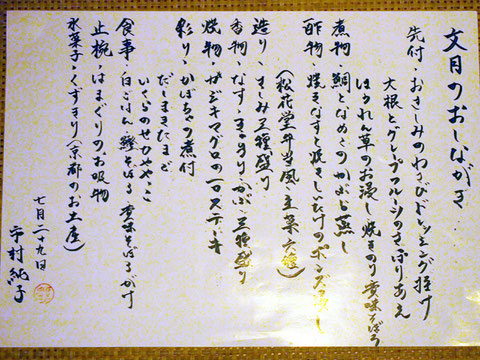 文月のおしながき
先付・おさしみのわさびドレッシング掛け
大根とグレープフルーツのさっぱりあえ
ほうれん草のお浸し 焼きのり 香味そぼろ
煮物・鯛となめこのかぶら蒸し
酢物・焼きなすと焼きしいたけのポン酢
(松花堂弁当風・主菜六種)
造り・さしみ三種盛り
香物・なす・きゅうり・かぶ・三種盛り
焼物・カジキマグロの一口ステーキ
彩り・かぼちゃの煮付
だしまきたまご
いくらの
食事・白ごはん・鰹そぼろ 香味そぼろかけ
止椀・はまぐりのお吸物
水菓子・くずきり(京都のお土産)
七月二十九日
市村純子